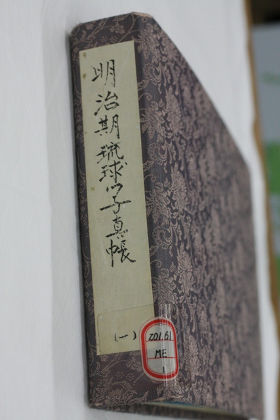 明治期琉球写真帳
(一)
Z01.61
ME
1